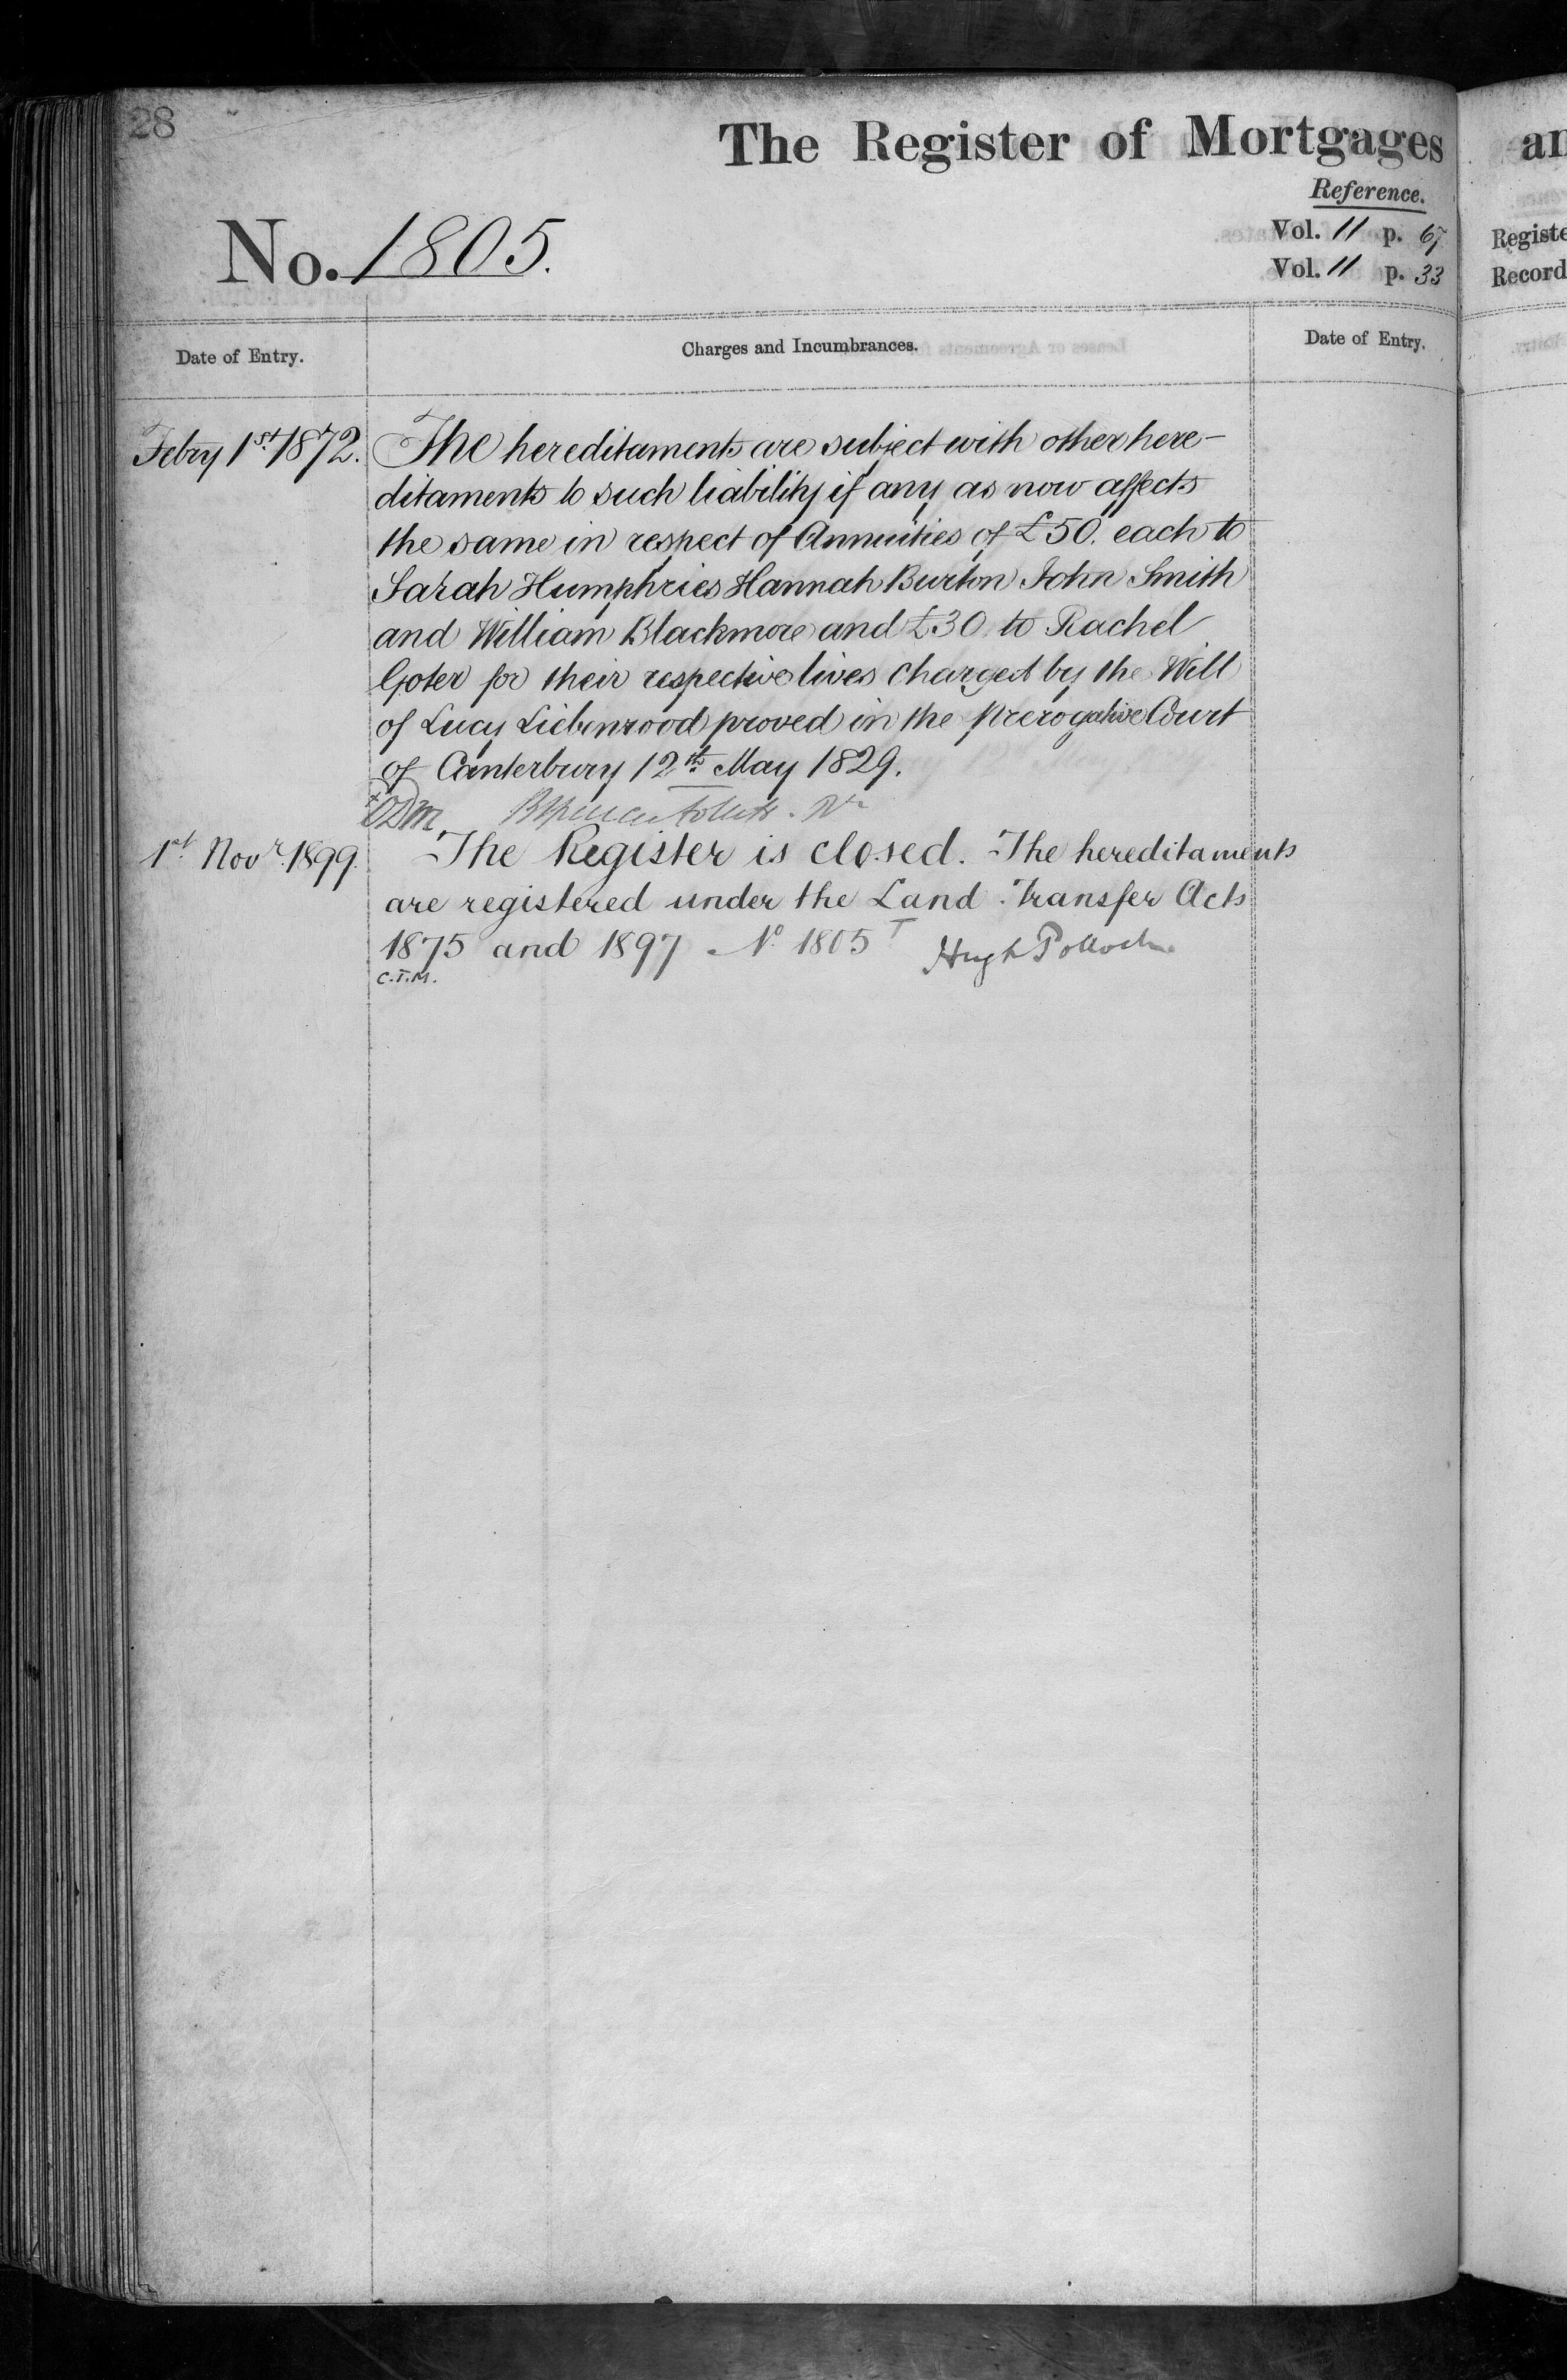 28
The Register of Mortgages
an
Reference.
No. 1805.
Vol. 11 p. 67
Registe
Vol. 11 p. 33
Record
Date of Entry.
Charges and Incumbrances.
Date of Entry.
Febry 1st 1872.
The hereditaments are subject with other here-
ditaments to such liability if any as now affects
the same in respect of Annuities of £50. each to
Sarah Humphries Hannah Burton John Smith
and William Blackmore and £30 to Rachel
Goter for their respective lives charged by the Will
of Lucy Liebenrood proved in the Prerogative Court
of Canterbury 12th May 1829.
1st Novr. 1899.
The Register is closed. The hereditaments
are registered under the Land Transfer Acts
1875 and 1897 No. 1805 T Hugh Pollock
C.T.M.